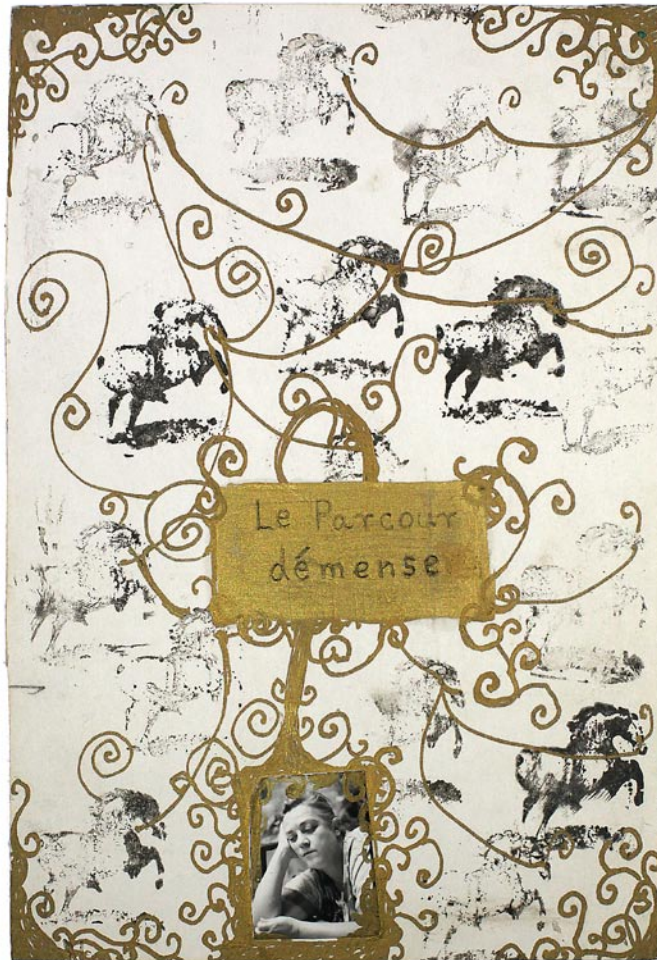 Le Parcour
démense